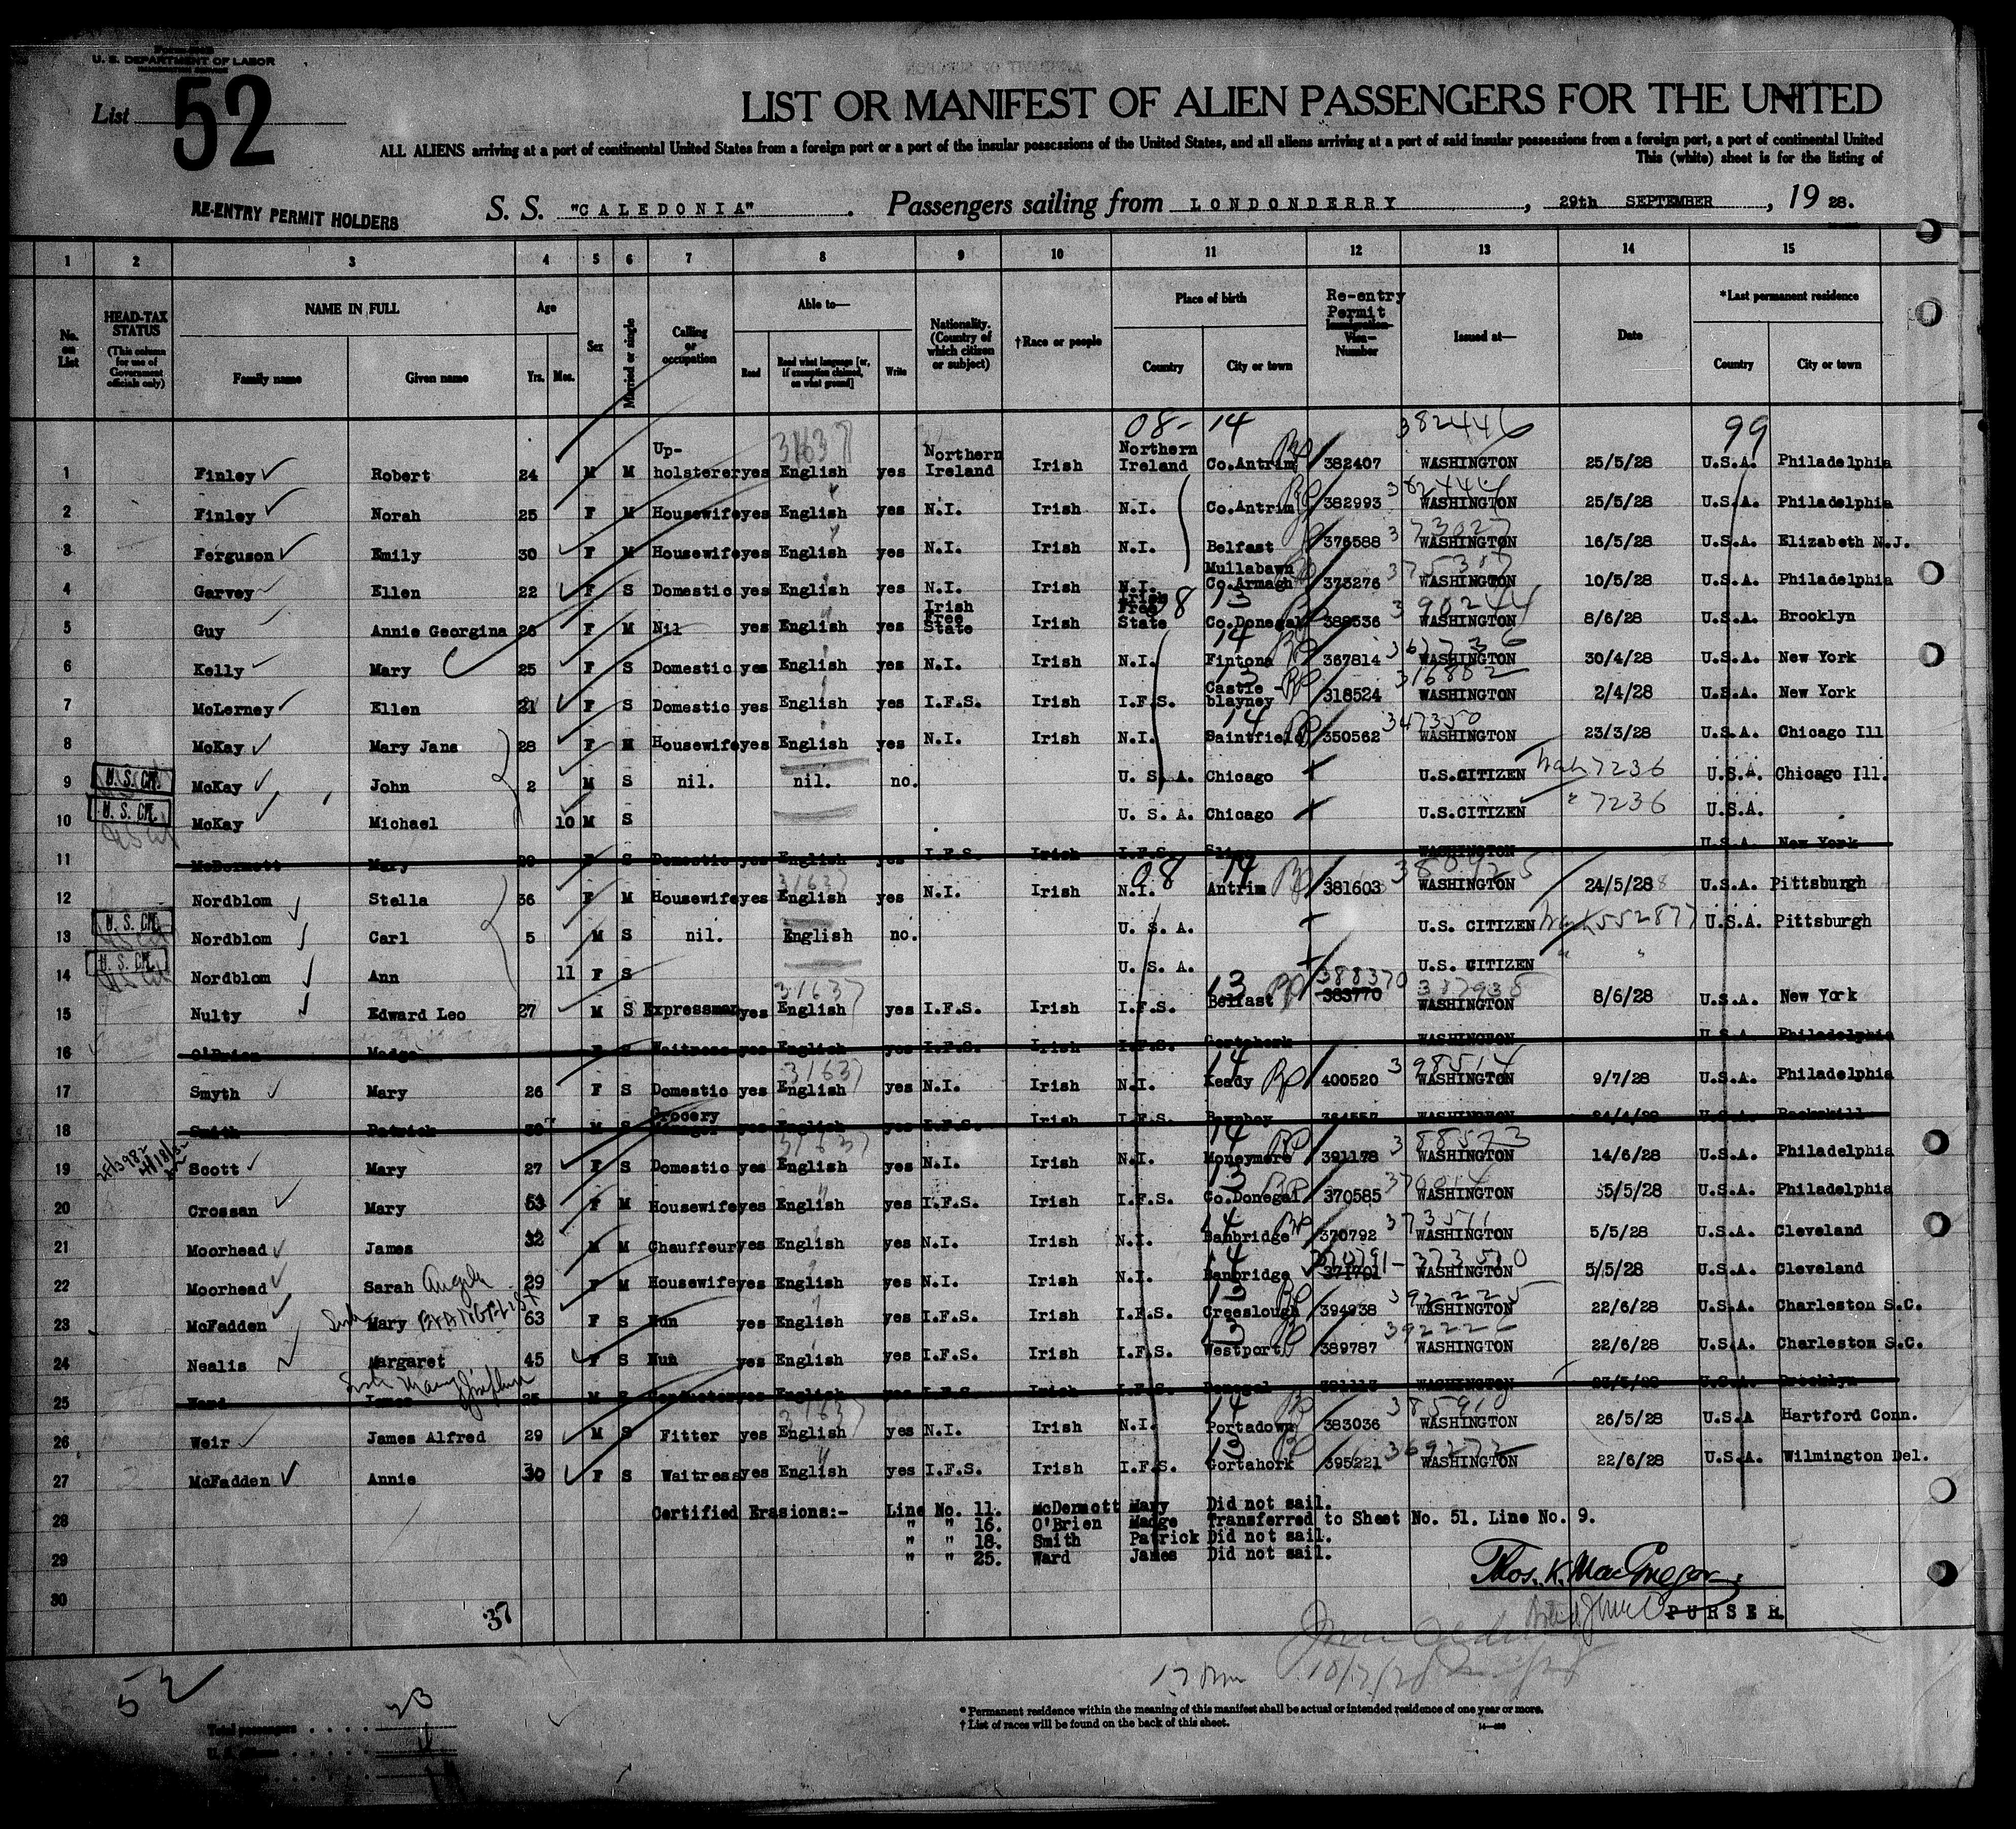 U. S. DEPARTMENT OF LABOR
List 52
LIST OR MANIFEST OF ALIEN PASSENGERS FOR THE UNITED
ALL ALIENS arriving at a port of continental United States from a foreign port or a port of the insular possessions of the United States, and all aliens arriving at a port of said insular possessions from a foreign port, a port of continental United
This (white) sheet is for the listing of
RE-ENTRY PERMIT HOLDERS S. S. "CALEDONIA" . Passengers sailing from LONDONDERRY , 29th SEPTEMBER , 19 28.
1 2 3 4 5 6 7 8 9 10 11 12 13 14 15
No. on List HEAD-TAX STATUS (This column for use of Government officials only) NAME IN FULL Family name Given name Age Yrs. Mos. Sex Married or single Calling or occupation Able to— Read Read what language [or, if exemption claimed, on what ground] Write Nationality. (Country of which citizen or subject) †Race or people Place of birth Country City or town Re-entry Permit Immigration Visa Number Issued at— Date *Last permanent residence Country City or town
08- 14 382446 99
1 Finley Robert 24 M M Up-holsterer yes English yes Northern Ireland Irish Northern Ireland Co.Antrim 382407 WASHINGTON 25/5/28 U.S.A. Philadelphia
2 Finley Norah 25 F M Housewife yes English yes N.I. Irish N.I. Co.Antrim 382993 WASHINGTON 25/5/28 U.S.A. Philadelphia
3 Ferguson Emily 30 F M Housewife yes English yes N.I. Irish N.I. Belfast 376588 WASHINGTON 16/5/28 U.S.A. Elizabeth N.J.
4 Garvey Ellen 22 F S Domestic yes English yes N.I. Irish N.I. Mullabawn Co.Armagh 375276 WASHINGTON 10/5/28 U.S.A. Philadelphia
5 Guy Annie Georgina 26 F M Nil yes English yes Irish Free State Irish Irish Free State Co.Donegal 388536 WASHINGTON 8/6/28 U.S.A. Brooklyn
6 Kelly Mary 25 F S Domestic yes English yes N.I. Irish N.I. Fintona 367814 WASHINGTON 30/4/28 U.S.A. New York
7 McLerney Ellen 21 F S Domestic yes English yes I.F.S. Irish I.F.S. Castle-blayney 318524 WASHINGTON 2/4/28 U.S.A. New York
8 McKay Mary Jane 28 F M Housewife yes English yes N.I. Irish N.I. Saintfield 350562 347350 WASHINGTON 23/3/28 U.S.A. Chicago Ill
9 U. S. CIT. McKay John 2 M S nil. nil. no. U. S. A. Chicago U.S.CITIZEN 7236 U.S.A. Chicago Ill.
10 U. S. CIT. McKay Michael 10 M S U. S. A. Chicago U.S.CITIZEN 7236 U.S.A.
11 McDermott Mary F S Domestic yes English yes I.F.S. Irish I.F.S. Sligo WASHINGTON U.S.A. New York
12 Nordblom Stella 36 F M Housewife yes English yes N.I. Irish N.I. Antrim 381603 WASHINGTON 24/5/28 U.S.A. Pittsburgh
13 U. S. CIT. Nordblom Carl 5 M S nil. English no. U. S. A. U.S. CITIZEN 552877 U.S.A. Pittsburgh
14 U. S. CIT. Nordblom Ann 11 F S U. S. A. U.S. CITIZEN " "
15 Nulty Edward Leo 27 M S Expressman yes English yes I.F.S. Irish I.F.S. Belfast 388370 383770 WASHINGTON 8/6/28 U.S.A. New York
16 O'Brien Madge F S Waitress yes English yes I.F.S. Irish I.F.S. Gortahork WASHINGTON U.S.A. Philadelphia
17 Smyth Mary 26 F S Domestic yes English yes N.I. Irish N.I. Keady 400520 398514 WASHINGTON 9/7/28 U.S.A. Philadelphia
18 Smith Patrick M S Grocery Manager yes English yes I.F.S. Irish I.F.S. WASHINGTON 24/4/28 U.S.A.
19 Scott Mary 27 F S Domestic yes English yes N.I. Irish N.I. Moneymore 391178 388573 WASHINGTON 14/6/28 U.S.A. Philadelphia
20 Crossan Mary 53 F M Housewife yes English yes I.F.S. Irish I.F.S. Co.Donegal 370585 WASHINGTON 5/5/28 U.S.A. Philadelphia
21 Moorhead James 32 M M Chauffeur yes English yes N.I. Irish N.I. Banbridge 370792 373511 WASHINGTON 5/5/28 U.S.A. Cleveland
22 Moorhead Sarah Angela 29 F M Housewife yes English yes N.I. Irish N.I. Banbridge 370791 - 373510 371701 WASHINGTON 5/5/28 U.S.A. Cleveland
23 McFadden Mary 63 F S Nun yes English yes I.F.S. Irish I.F.S. Creeslough 394938 392225 WASHINGTON 22/6/28 U.S.A. Charleston S.C.
24 Nealis Margaret 45 F S Nun yes English yes I.F.S. Irish I.F.S. Westport 389787 WASHINGTON 22/6/28 U.S.A. Charleston S.C.
25 Ward James 25 M S Conductor yes English yes I.F.S. Irish I.F.S. Donegal WASHINGTON U.S.A. Brooklyn
26 Weir James Alfred 29 M S Fitter yes English yes N.I. Irish N.I. Portadown 383036 385910 WASHINGTON 26/5/28 U.S.A Hartford Conn.
27 McFadden Annie 30 F S Waitress yes English yes I.F.S. Irish I.F.S. Gortahork 395221 WASHINGTON 22/6/28 U.S.A. Wilmington Del.
28 Certified Erasions:- Line No. 11. McDermott Mary Did not sail.
" " 16. O'Brien Madge Transferred to Sheet No. 51. Line No. 9.
29 " " 18. Smith Patrick Did not sail.
" " 25. Ward James Did not sail.
Thos. K. MacGregor
30 37 PURSER.
52
* Permanent residence within the meaning of this manifest shall be actual or intended residence of one year or more.
† List of races will be found on the back of this sheet.
Total passengers . . . . 23